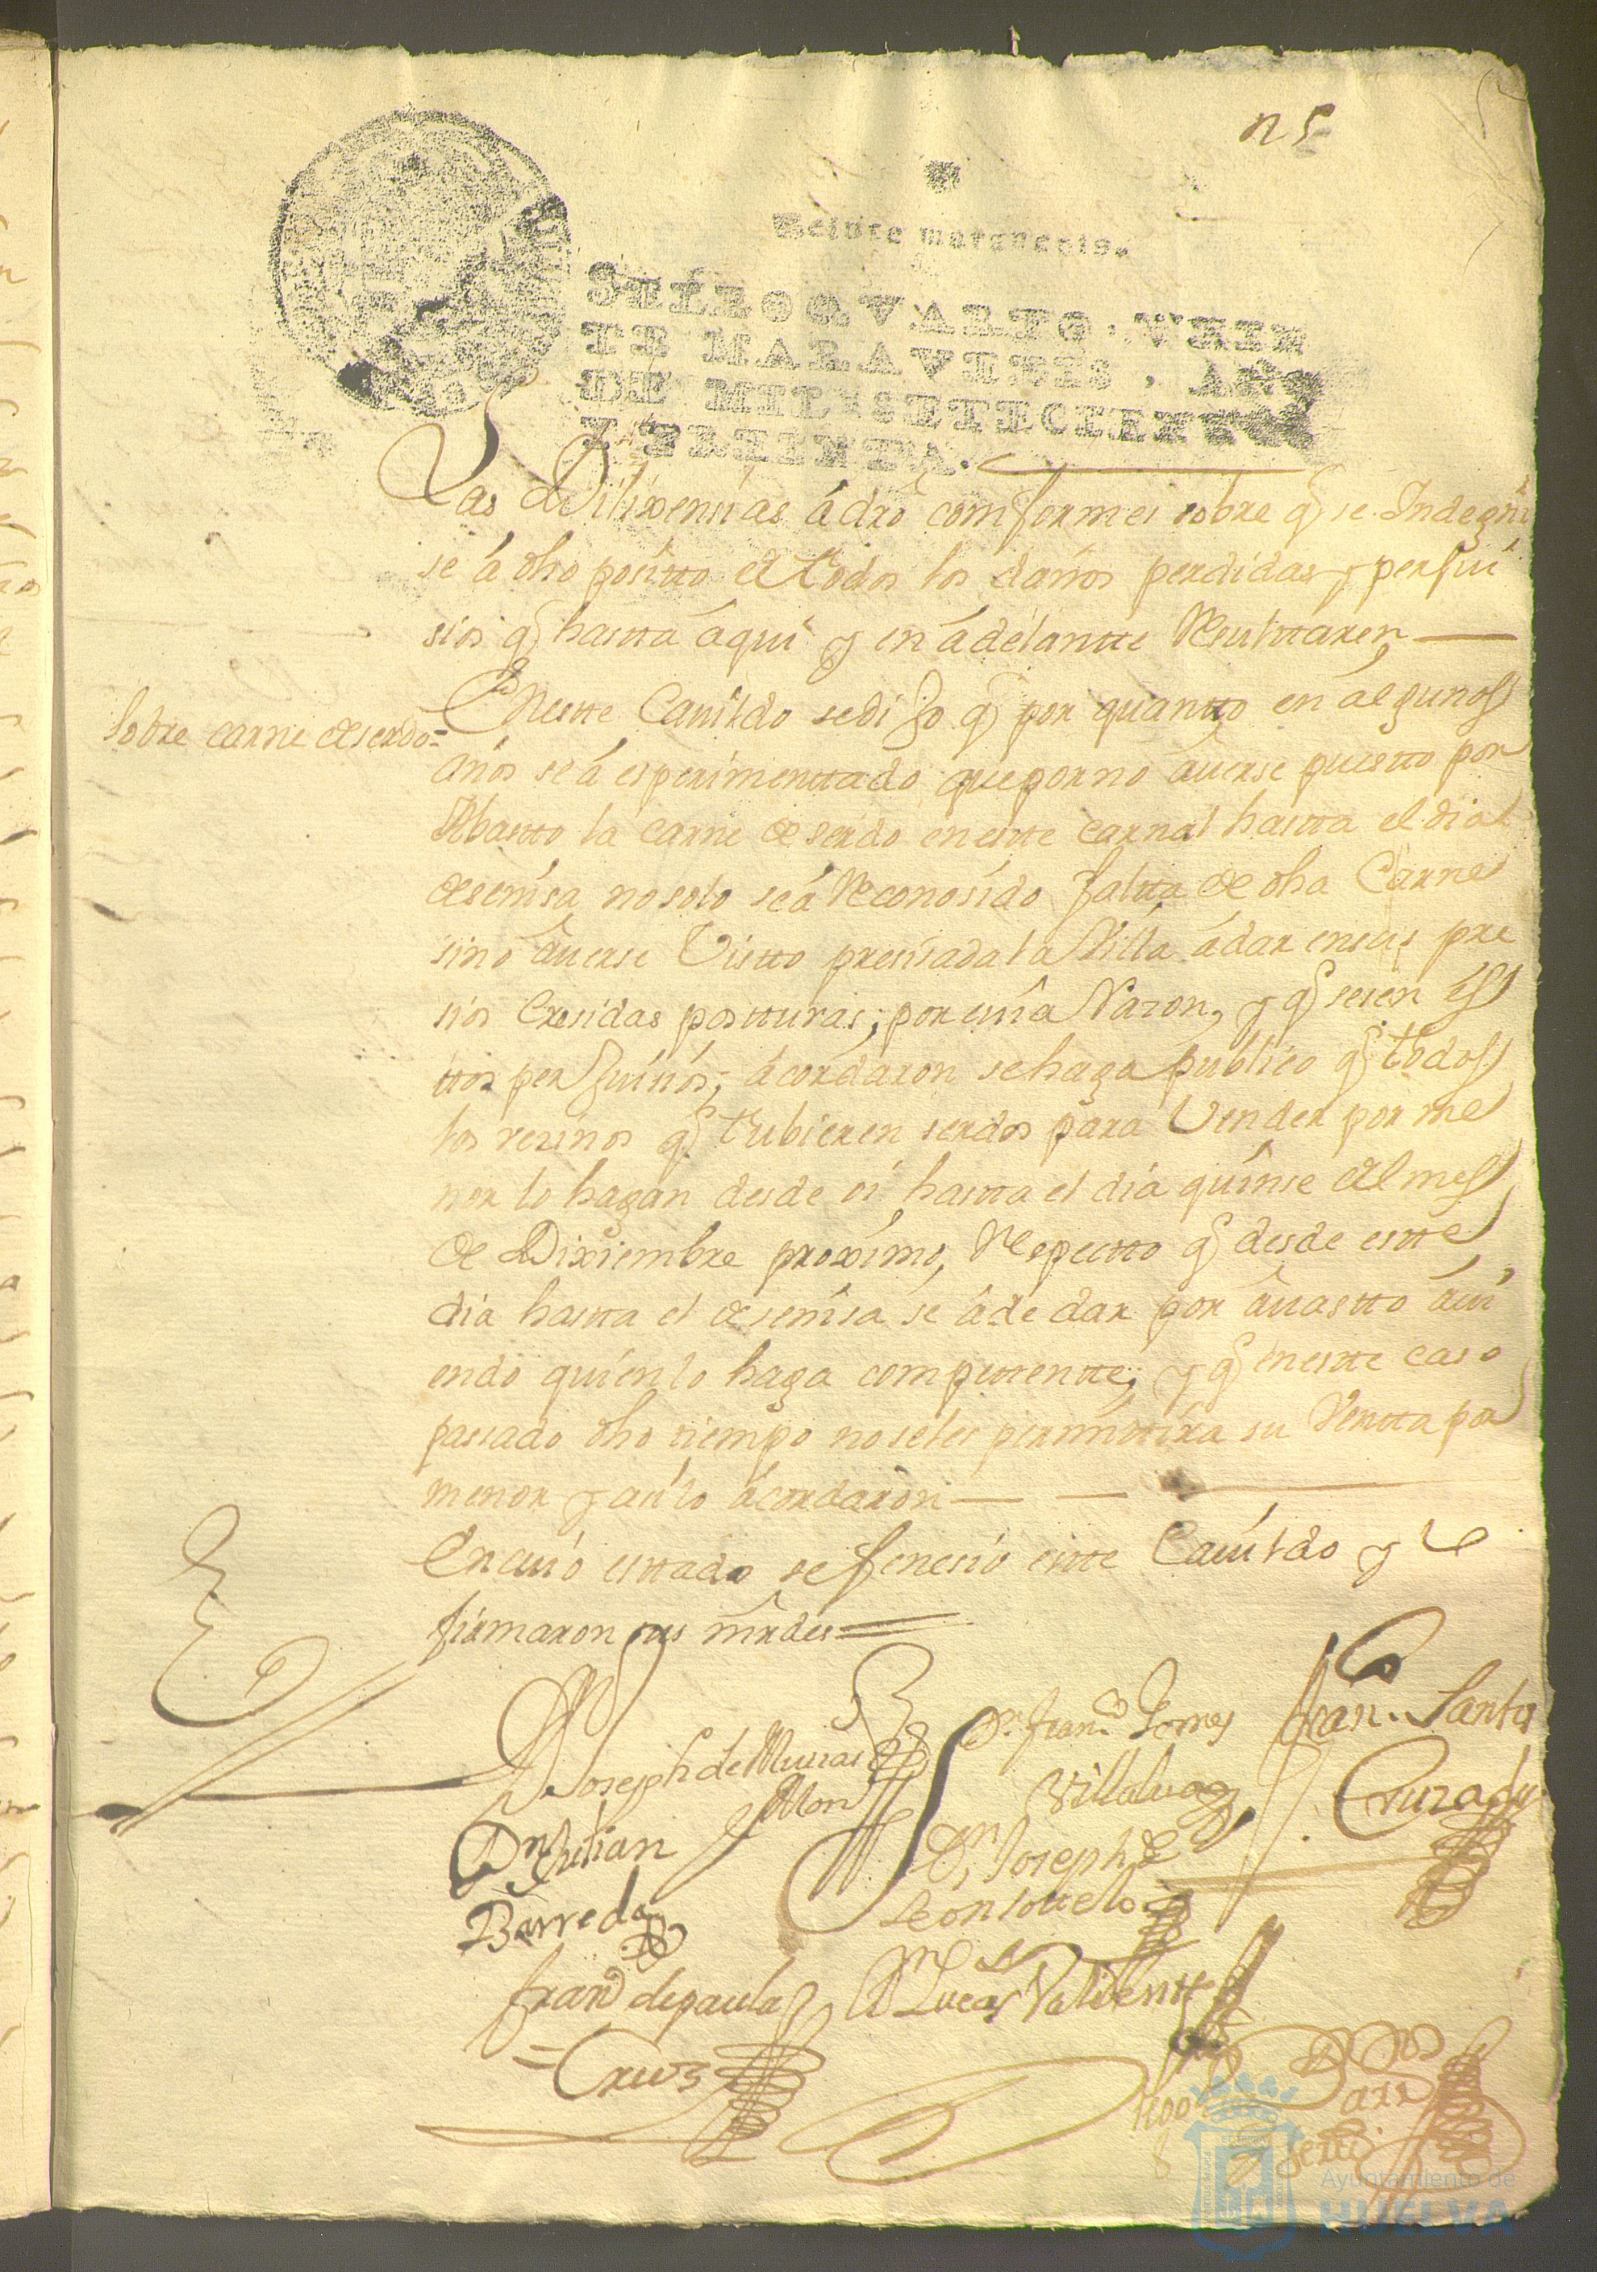 n 5
Veinte maravedis.
SELLO QVARTO, VEIN
TE MARAVEDIS, AÑO
DE MIL Y SETECIENTOS
Y SETENTA.
Las Dilixensias á dro comformes sobre q se Indegni
se á dho positto de todos los daños perdidas y perjui
sios q hastta áqui y en ádelantte Resulttaren
Sobre carne de serdo=
Enestte Cavildo se dijo q por quantto en álgunos
Años se á esperimenttado que por no áuerse puestto por
Abastto la carne de serdo en estte carnal hastta el dia
de senisa no solo se á Reconosido faltta de dha Carne
sino áuerse Vistto presisada la Villa á dar en sus pre
sios Cresidas postturas; por cuia Razon, y q sesen es
ttos perjuisios; ácordaron se haga publico q todos
los vezinos q tubieren serdos para Vender por me
nor lo hagan desde oi hastta el dia quinse del mes
de Diziembre proximo, Respectto q desde estte
dia hastta el de senisa se á de dar por áuastto áui
endo quien lo haga competentte; y q en estte caso
passado dho tiempo no se les permittira su Ventta por
menor y asi lo ácordaron
En cuio esttado se fenesio estte Cavildo y
firmaron sus mrdes=
Joseph de
Dn Fran.co Gomes
Villalua
Fran. Santos
Cruzado
Dn Julian
Barreda
Dn Joseph de
Leon Sottelo
Fran.co de paula
Cruz
Dn Lucas Valiente
Ayuntamiento de
HUELVA